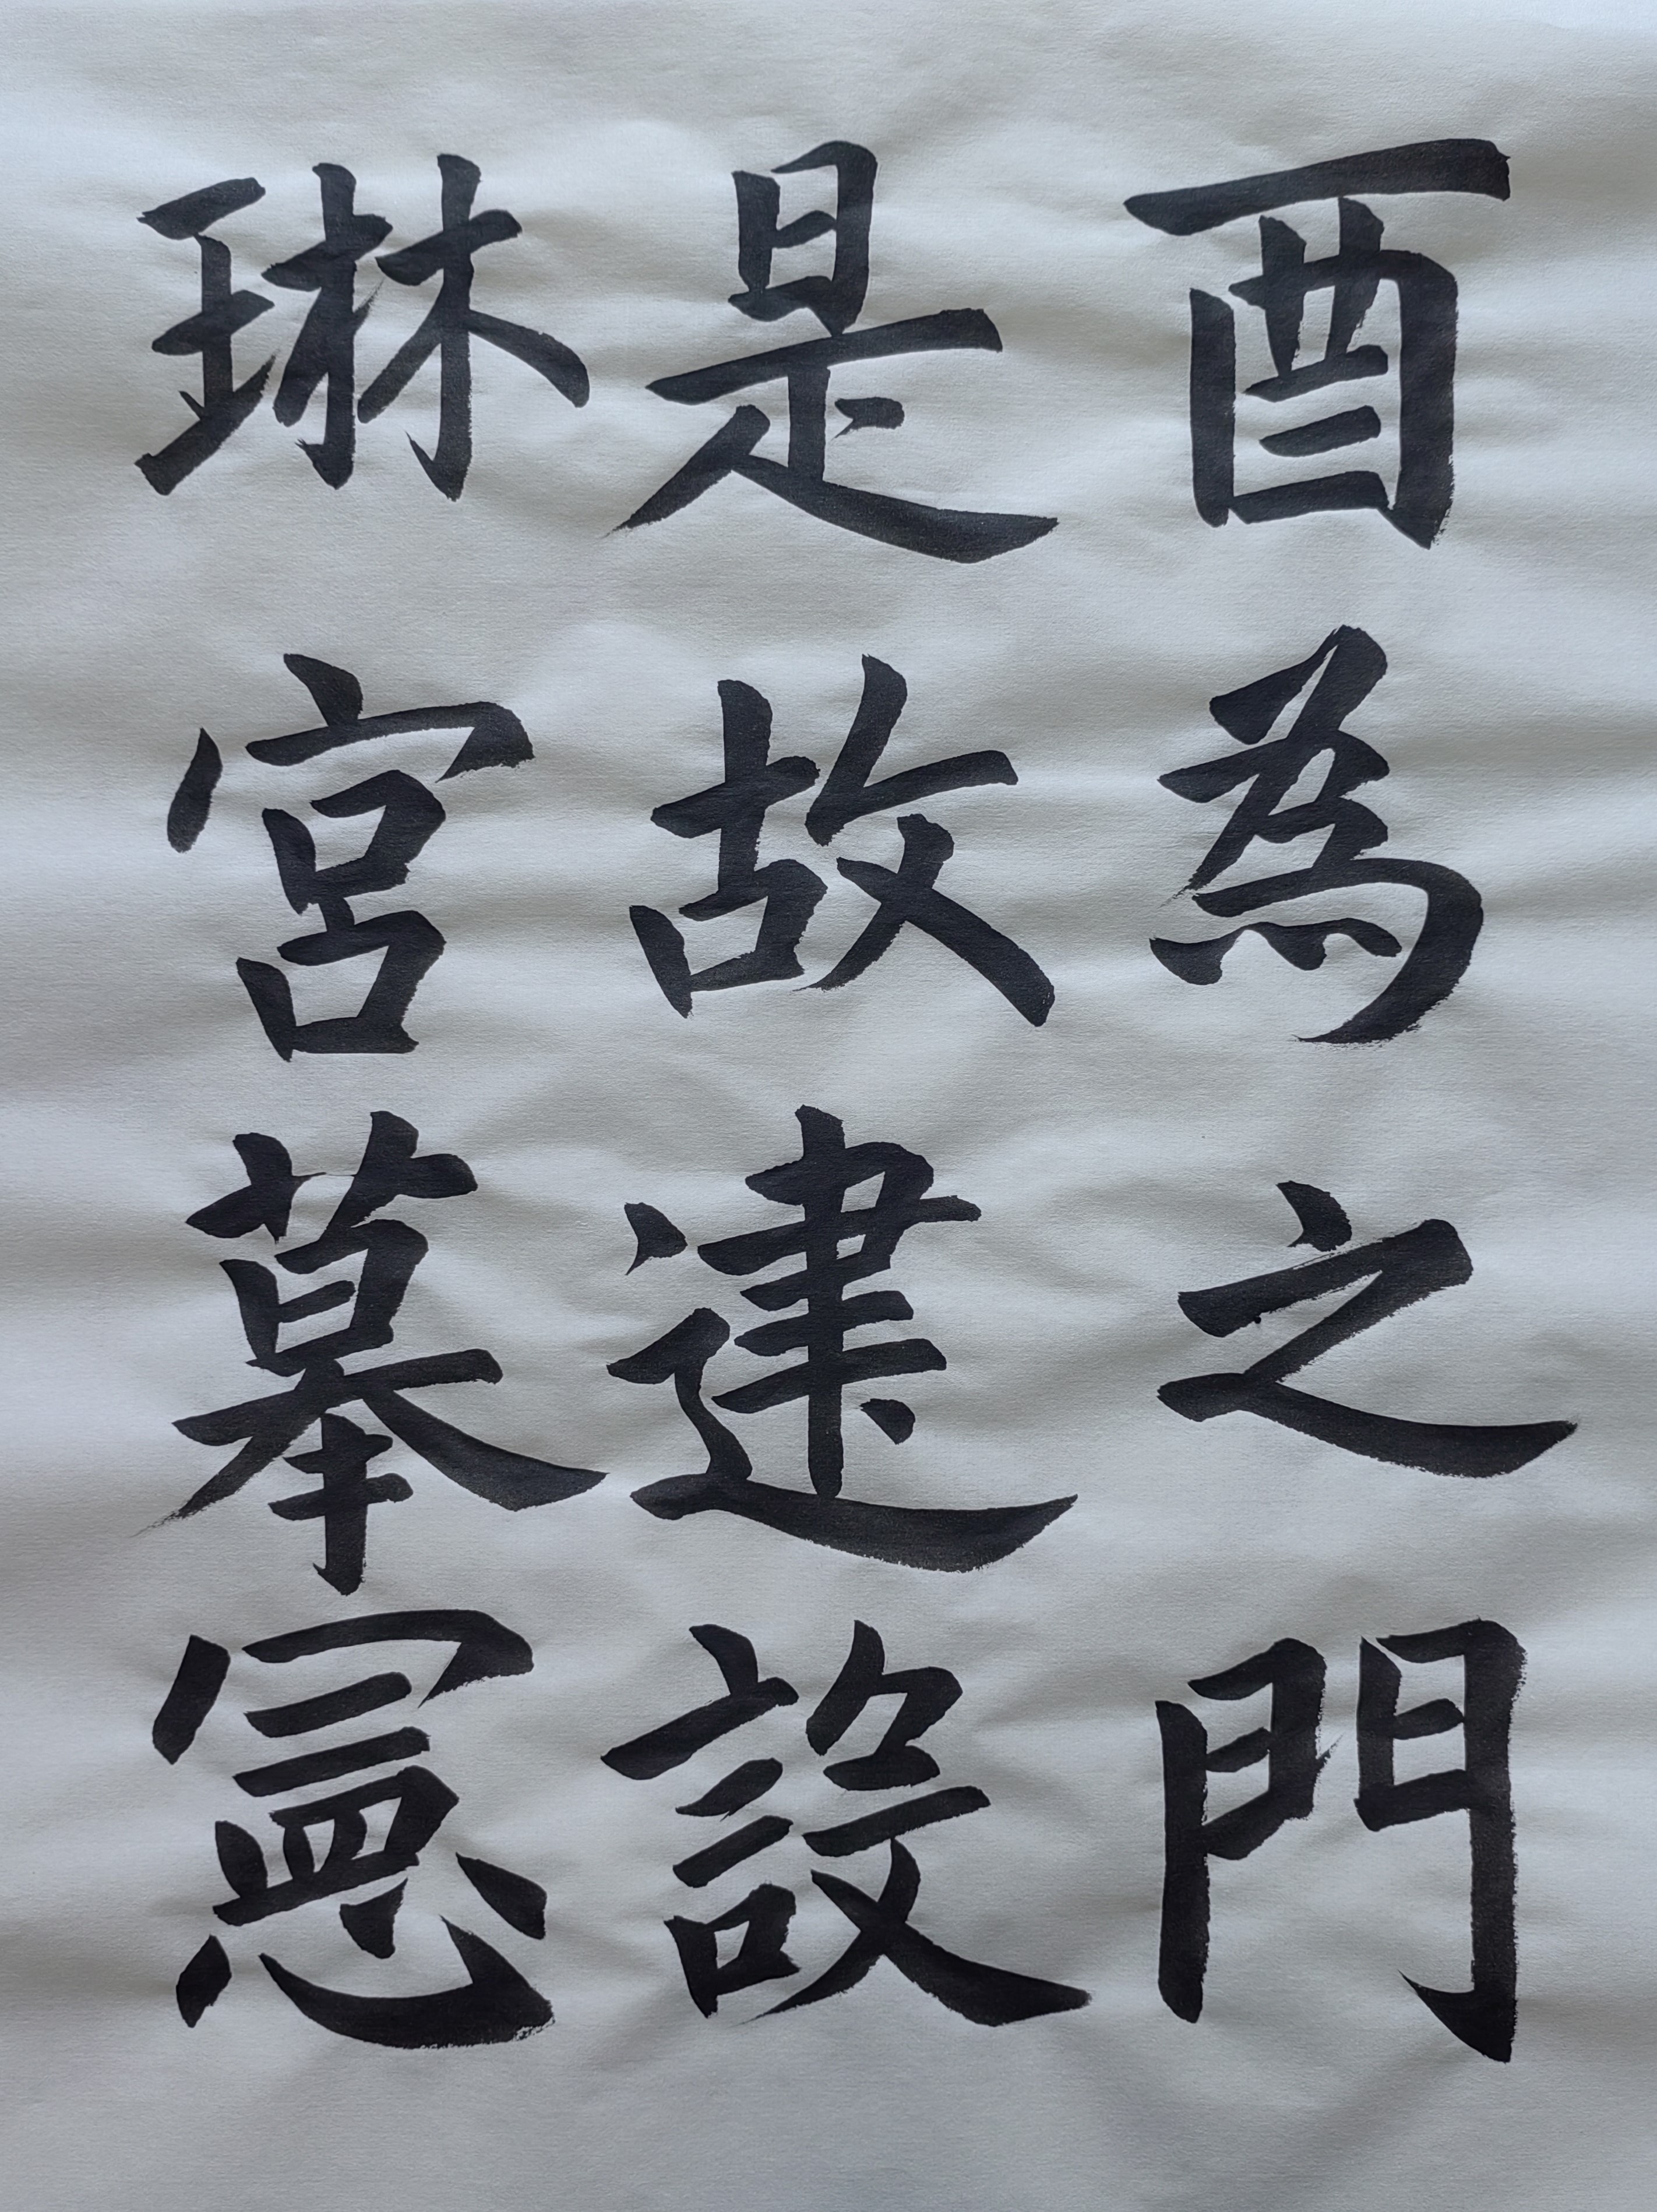 酉為之門
是故建設
琳宮摹憲